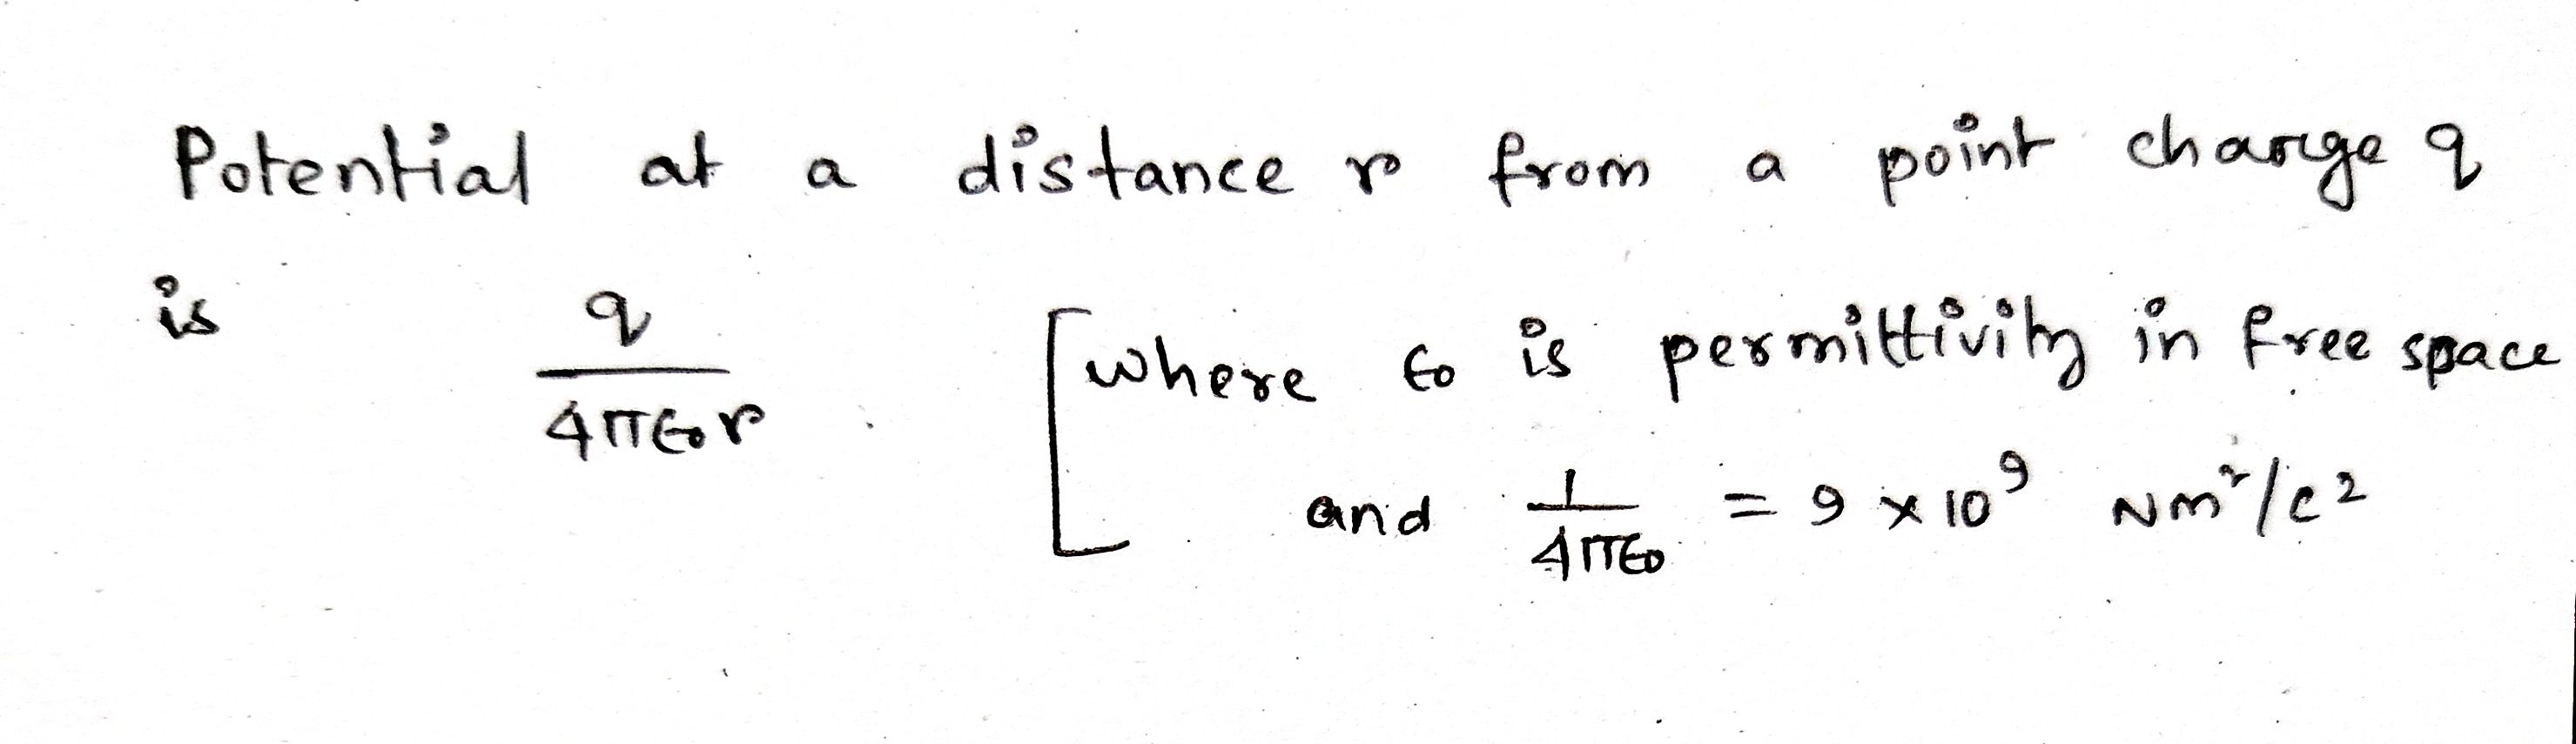 Potential at a distance r from a point charge q
is q/4π∈₀r [where ∈₀ is permittivity in free space
and 1/4π∈₀ = 9 × 10⁹ Nm²/c²